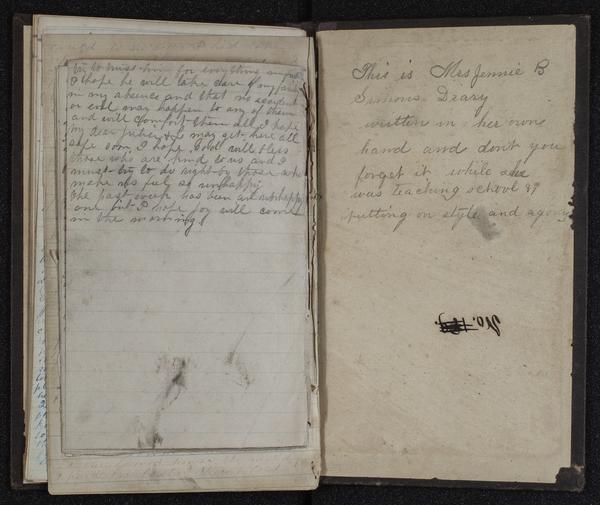 try to miss him for everything in
I hope he will take care of my
in my absence and that no accident
or evil may happen to any of them
and will comfort them all I hope
my dear father & C may get here all
safe soon I hope God will bless
those who are kind to us and I
must try to do right by those who
make us feel so unhappy
the past week has been an unhappy
one but I hope joy will come
in the morning
This is Mrs Jennie B
Simons Deary
written in her own
hand and don't you
forget it while she
was teaching school &
putting on style and agony
No.